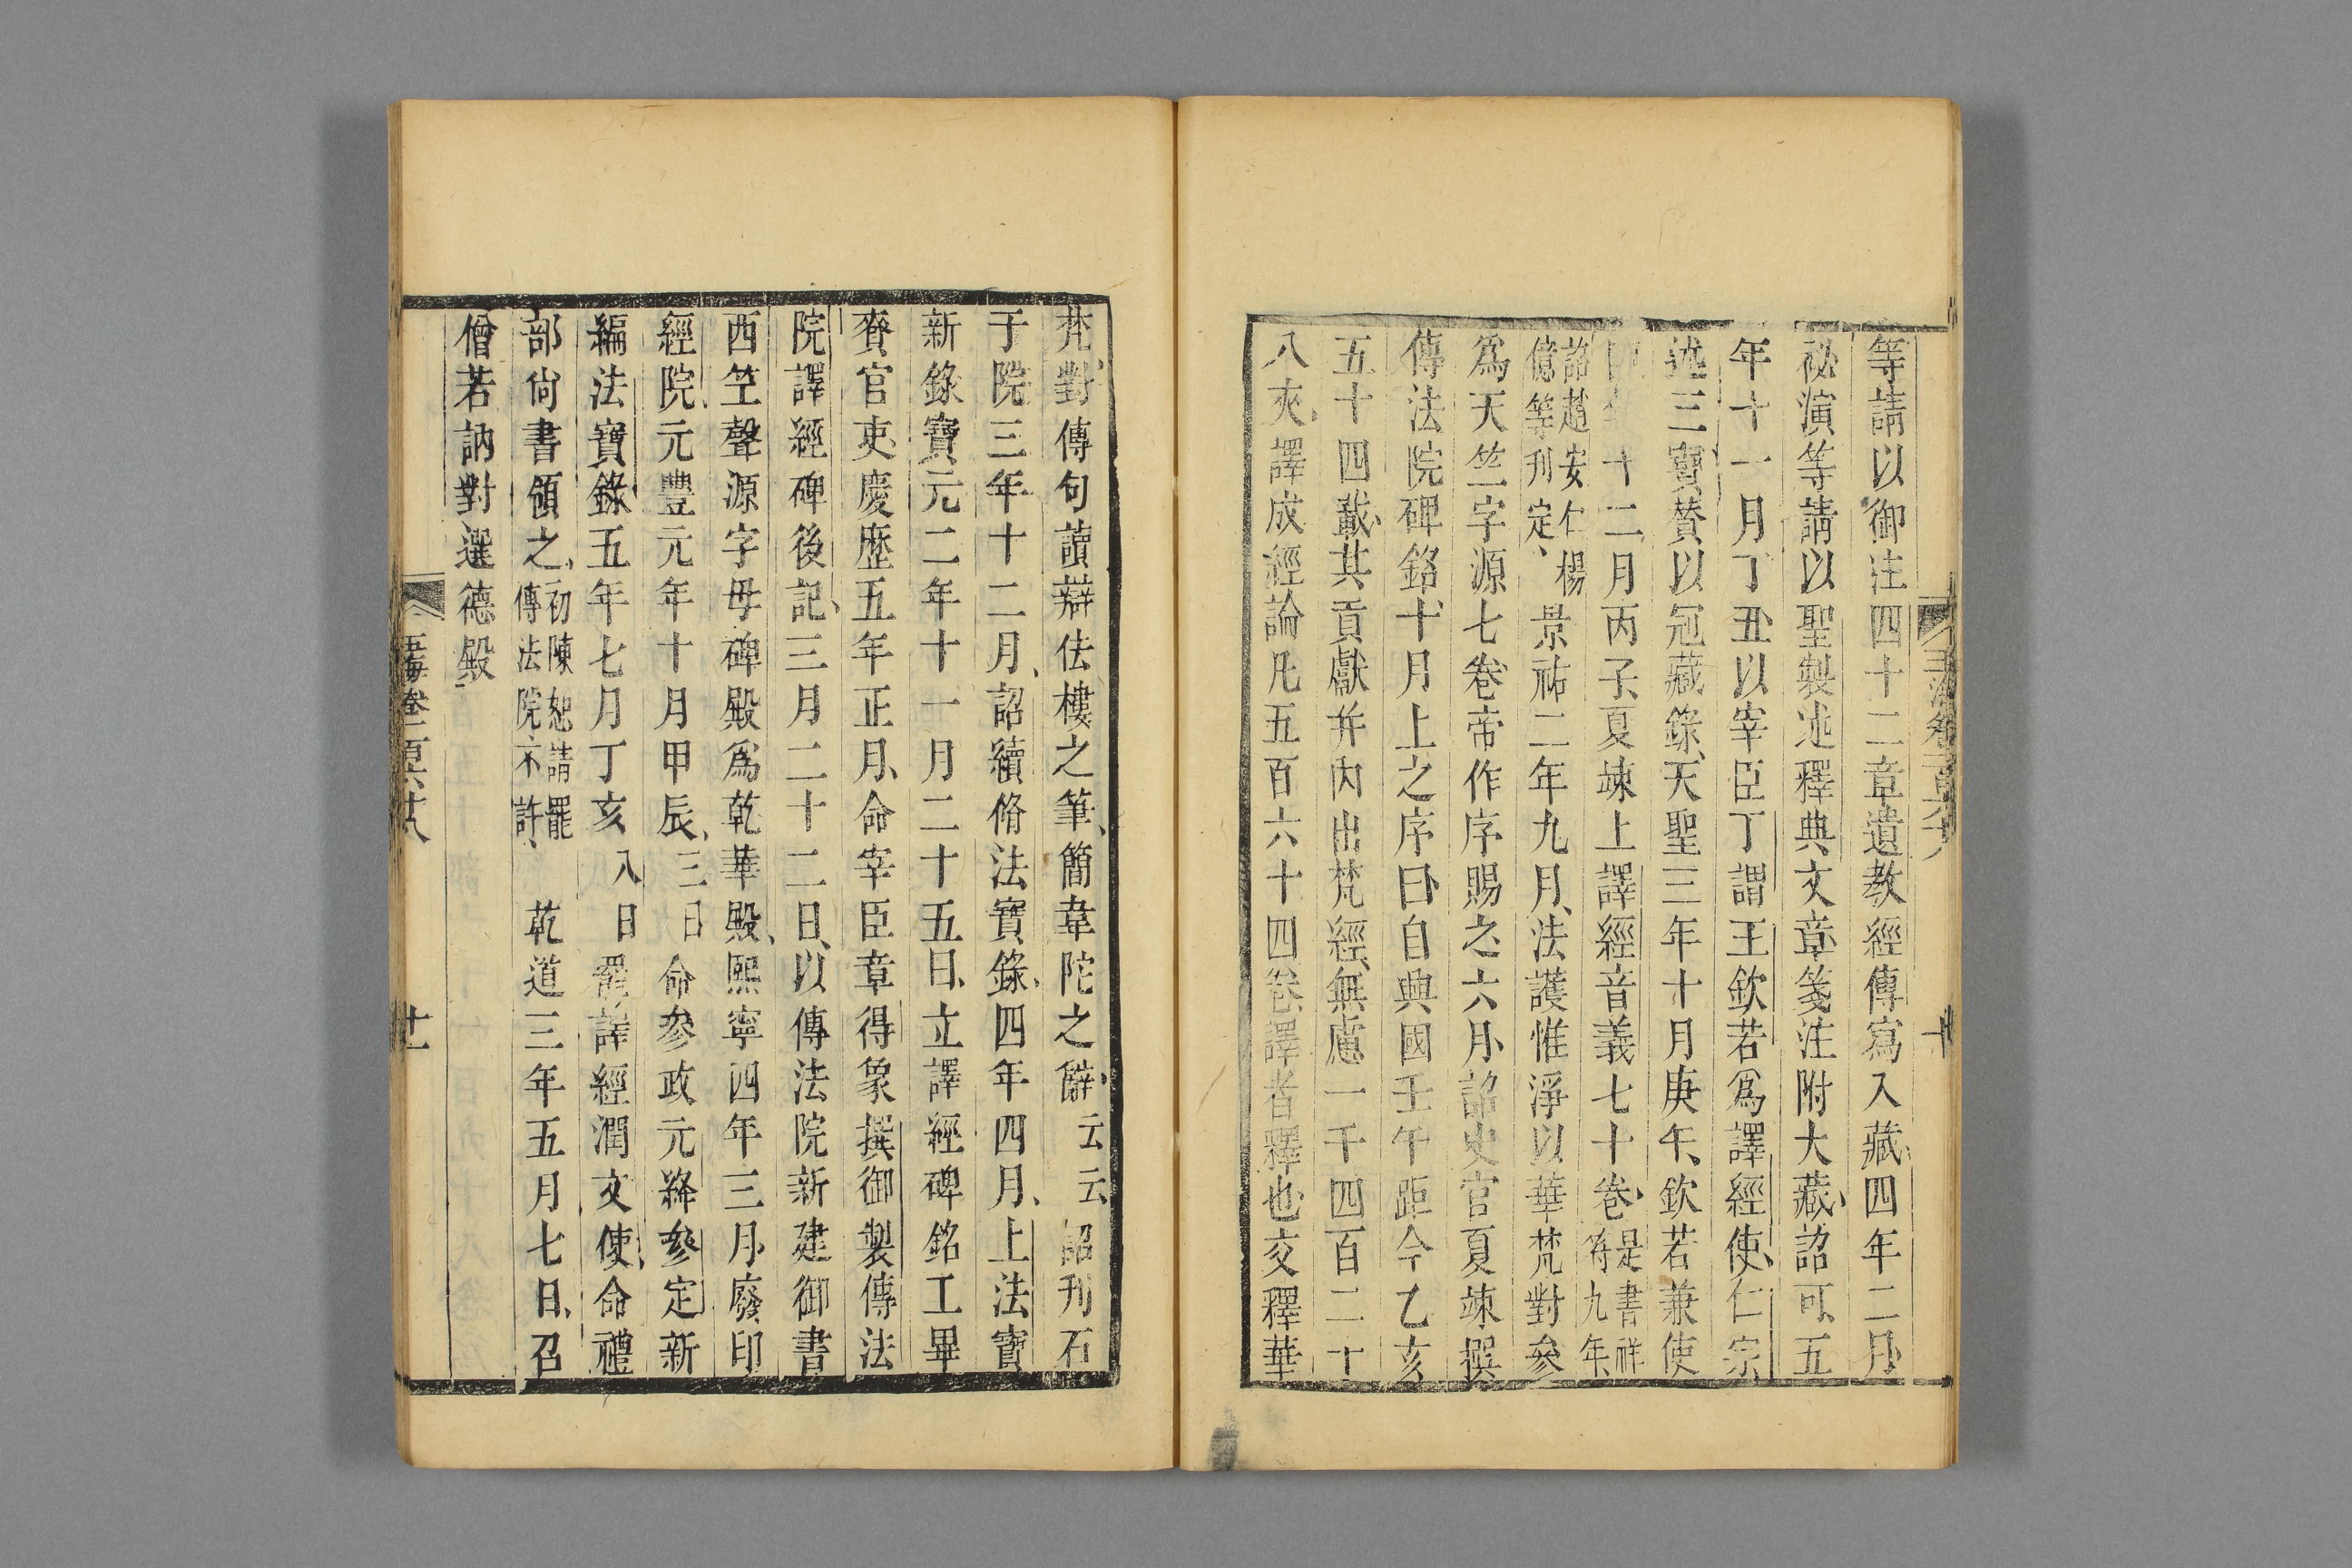 玉海卷一百六十八
十
等請以御注四十二章遺教經傳寫入藏四年二月
祕演等請以聖製述釋典文章箋注附大藏詔可五
年十一月丁丑以宰臣丁謂王欽若爲譯經使仁宗
述三寶贊以冠藏錄天聖三年十月庚午欽若兼使
十二月丙子夏竦上譯經音義七十卷是書祥符九年
詔趙安仁楊億等刊定景祐二年九月法護惟淨以華梵對參
爲天竺字源七卷帝作序賜之六月詔史官夏竦撰
傳法院碑銘十月上之序曰自興國壬午距今乙亥
五十四載其貢獻并內出梵經無慮一千四百二十
八夾譯成經論凡五百六十四卷譯者釋也交釋華
梵對傳句讀辯佉樓之筆簡韋陀之辭云云詔刊石
于院三年十二月詔續脩法寶錄四年四月上法寶
新錄寶元二年十一月二十五日立譯經碑銘工畢
賚官吏慶歷五年正月命宰臣章得象撰御製傳法
院譯經碑後記三月二十二日以傳法院新建御書
西竺聲源字母碑殿爲乾華殿熙寧四年三月廢印
經院元豐元年十月甲辰三日命參政元絳參定新
編法寶錄五年七月丁亥八日罷譯經潤文使命禮
部尙書領之初陳恕請罷傳法院不許乾道三年五月七日召
僧若訥對選德殿
玉海卷一百六十八
十一